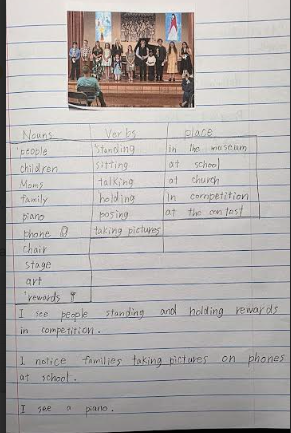 Nouns Verbs place
people standing in the museum
children sitting at school
Moms talking at church
family holding in competition
piano posing at the contest
phone taking pictures
chair
stage
art
rewards
I see people standing and holding rewards
in competition.
I notice families taking pictures on phones
at school.
I see a piano.